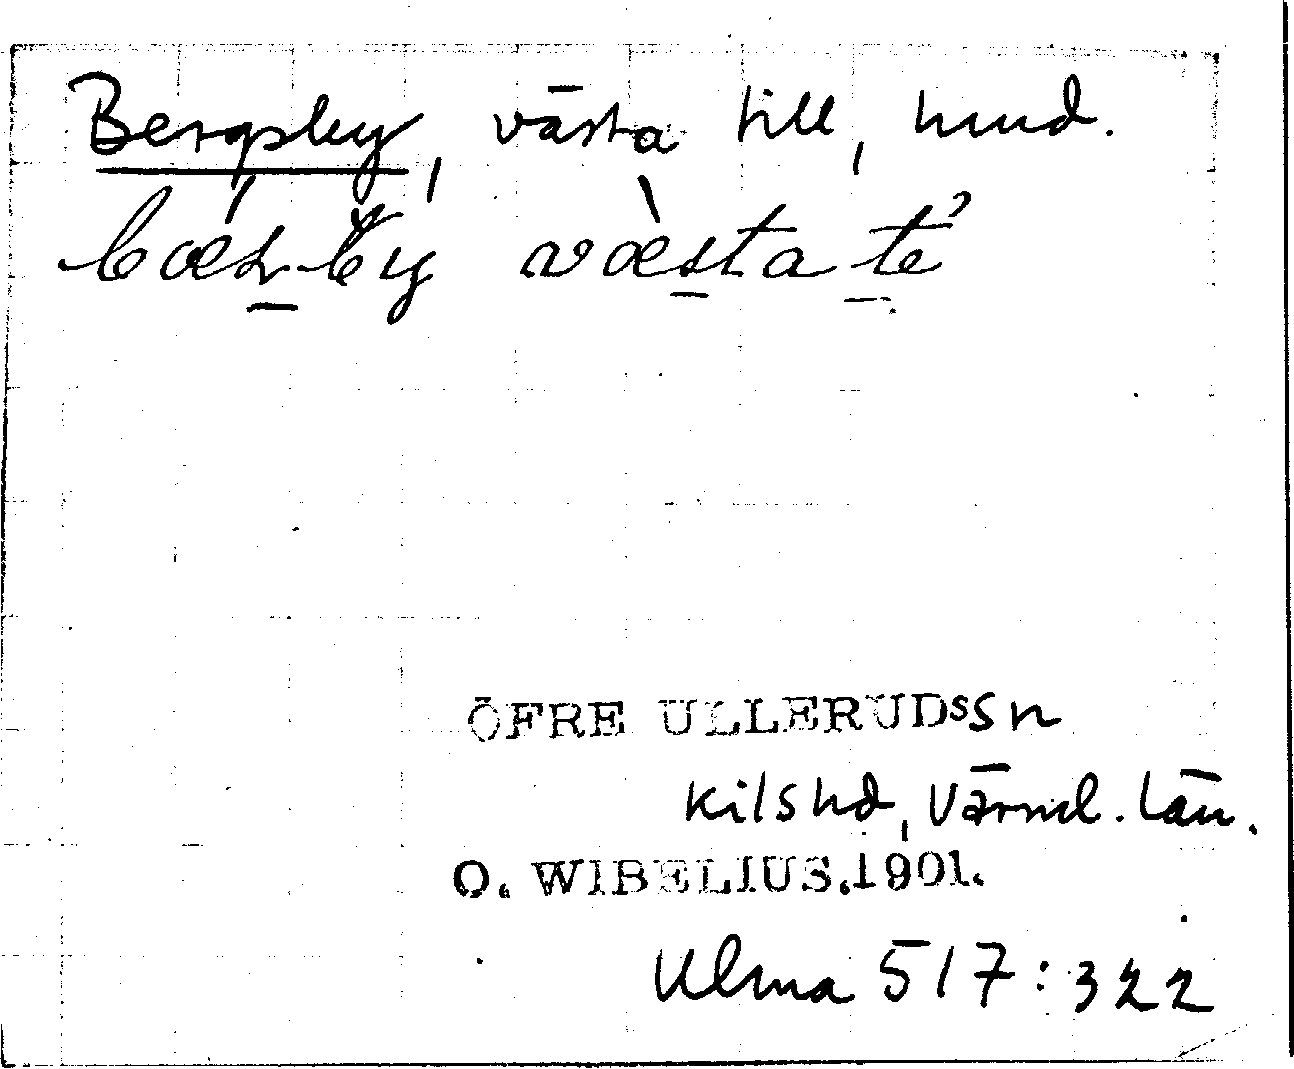 Bergsby, västa till, hmd.
bœsby vœsta te
ÖFRE ULLERUDS Sn
Kils hd, Värml. län.
O. WIBELIUS. 1901.
Ulma 517:322